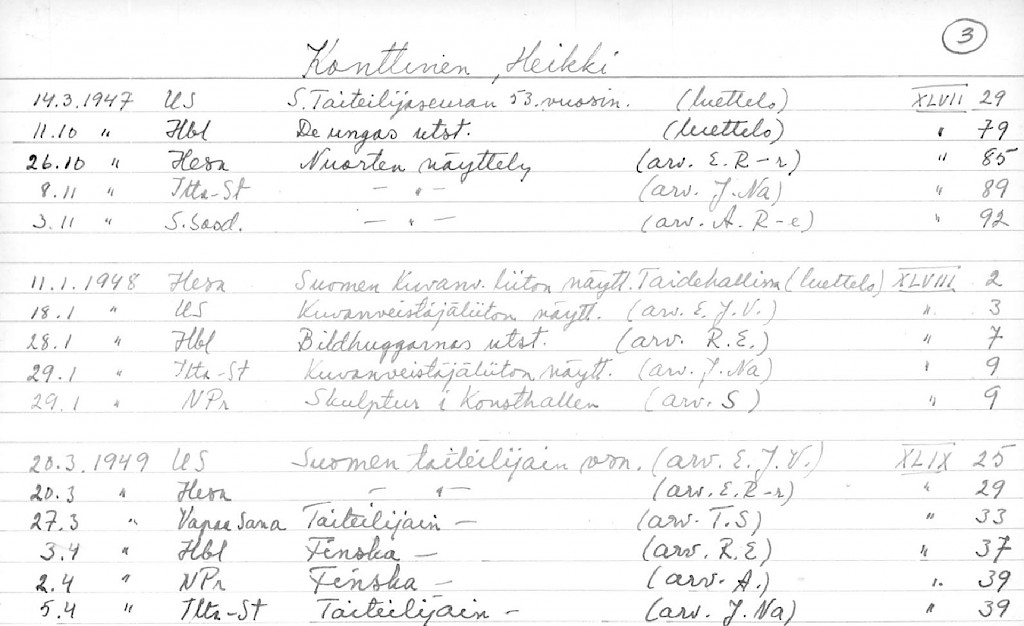 3
Konttinen, Heikki
14.3.1947 US S. Taiteilijaseuran 53. vuosin. (luettelo) XLVII 29
11.10 " Hbl De ungas utst. (luettelo) " 79
26.10 " Hesa Nuorten näyttely (arv. E. R-r) " 85
8.11 " Ilta-St — " — (arv. J. Na) " 89
3.11 " S. Sosd. — " — (arv. A. R-e) " 92
11.1.1948 Hesa Suomen Kuvanv. liiton näytt. Taidehallissa (luettelo) XLVIII 2
18.1 " US Kuvanveistäjäliiton näytt. (arv. E. J. V.) " 3
28.1 " Hbl Bildhuggarnas utst. (arv. R. E.) " 7
29.1 " Ilta-St Kuvanveistäjäliiton näytt. (arv. J. Na) " 9
29.1 " NPr Skulptur i Konsthallen (arv. S) " 9
20.3.1949 US Suomen taiteilijain vsn. (arv. E. J. V.) XLIX 25
20.3 " Hesa — " — (arv. E. R-r) " 29
27.3 " Vapaa Sana Taiteilijain — (arv. T. S) " 33
3.4 " Hbl Finska — (arv. R. E) " 37
2.4 " NPr Finska — (arv. A.) " 39
5.4 " Ilta-St Taiteilijain — (arv. J. Na) " 39